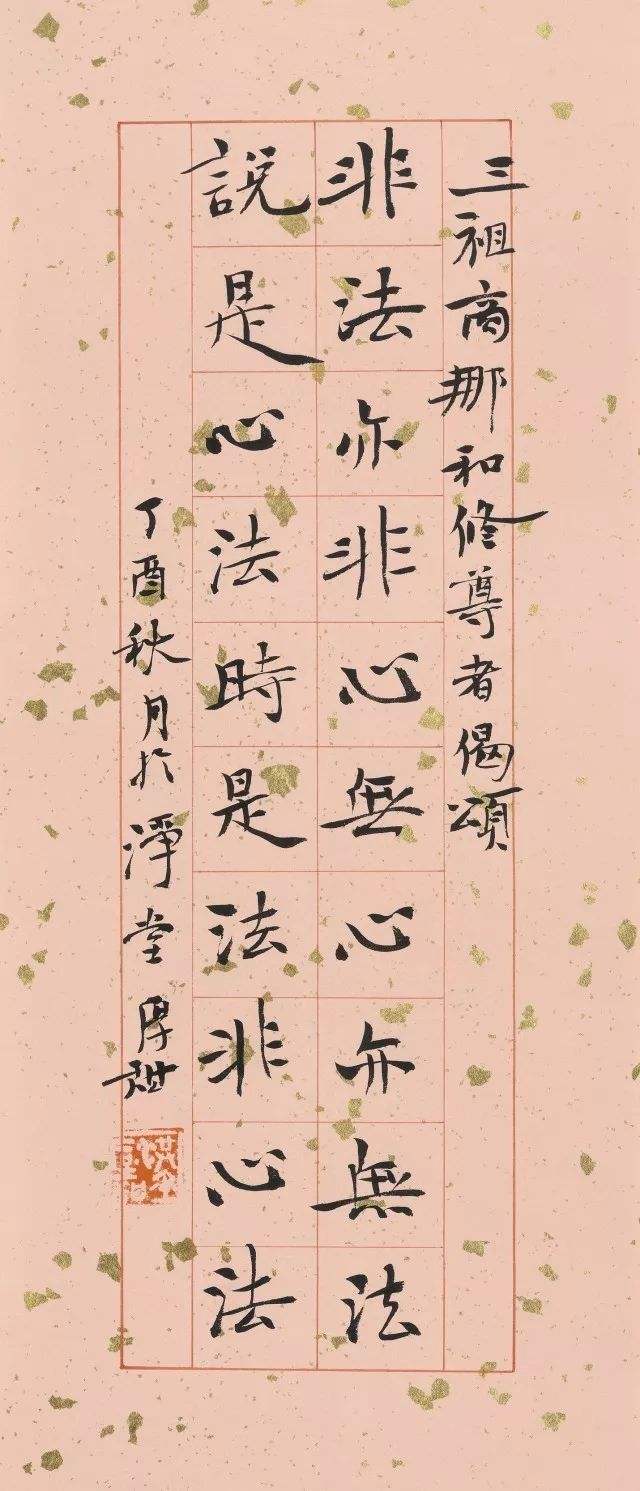 三祖商那和修尊者偈頌
非法亦非心無心亦無法
說是心法時是法非心法
丁酉秋月於淨堂厚甜